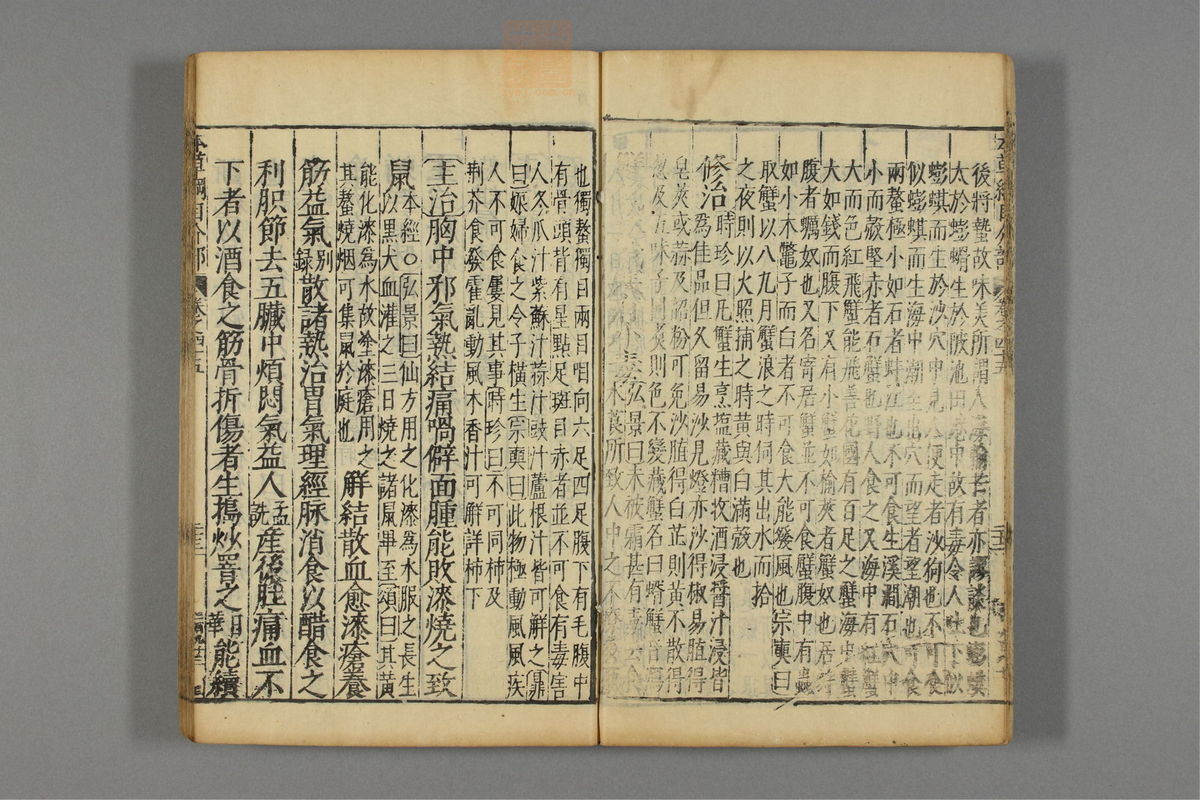 後將蟄故味美所謂人
大於蟛螖生於陂池田港中故有毒令人吐下似
蟛蜞而生於沙穴中見人便走者沙狗也不可食
似蟛蜞而生海中潮至出穴而望者望潮也可食
兩螯極小如石者蚌江也不可食生溪澗石穴中
小而殼堅赤者石蟹也野人食之又海中有紅蟹
大而色紅飛蟹能飛善苑國有百足之蟹海中蟹
大如錢而腹下又有小蟹如榆莢者蟹奴也居蚌
腹者蠣奴也又名寄居蟹並不可食蟹腹中有蟲
如小木鼈子而白者不可食大能發風也宗奭曰
取蟹以八九月蟹浪之時伺其出水而拾
之夜則以火照捕之時黃與白滿殼也
修治時珍曰凡蟹生烹鹽藏糟收酒浸醬汁浸皆
為佳品但久留易沙見燈亦沙得椒易脂得
皂莢或蒜及韶粉可免沙脂得白芷則黃不散得
葱及五味子同煮則色不變藏蟹名曰蝑蟹
小毒弘景曰未被霜甚有毒云食
水莨所致人中之不療多
也獨螯獨目兩目相向六足四足腹下有毛腹中
有骨頭背有星點足斑目赤者並不可食有毒害
人冬瓜汁紫蘇汁蒜汁豉汁蘆根汁皆可解之鼎
曰娠婦食之令子橫生宗奭曰此物極動風風疾
人不可食屢見其事時珍曰不可同柿及
荆芥食發霍亂動風木香汁可解詳柿下
主治胸中邪氣熱結痛喎僻面腫能敗漆燒之致
鼠本經○弘景曰仙方用之化漆為水服之長生
以黑犬血灌之三日燒之諸鼠畢至頌曰其黃
能化漆為水故塗漆瘡用之
其螯燒烟可集鼠於庭也
解結散血愈漆瘡養
筋益氣別錄散諸熱治胃氣理經脉消食以醋食之
利肢節去五臟中煩悶氣益人孟詵産後肚痛血不
下者以酒食之筋骨折傷者生搗炒罯之日華能續
本草綱目介部 卷之四五